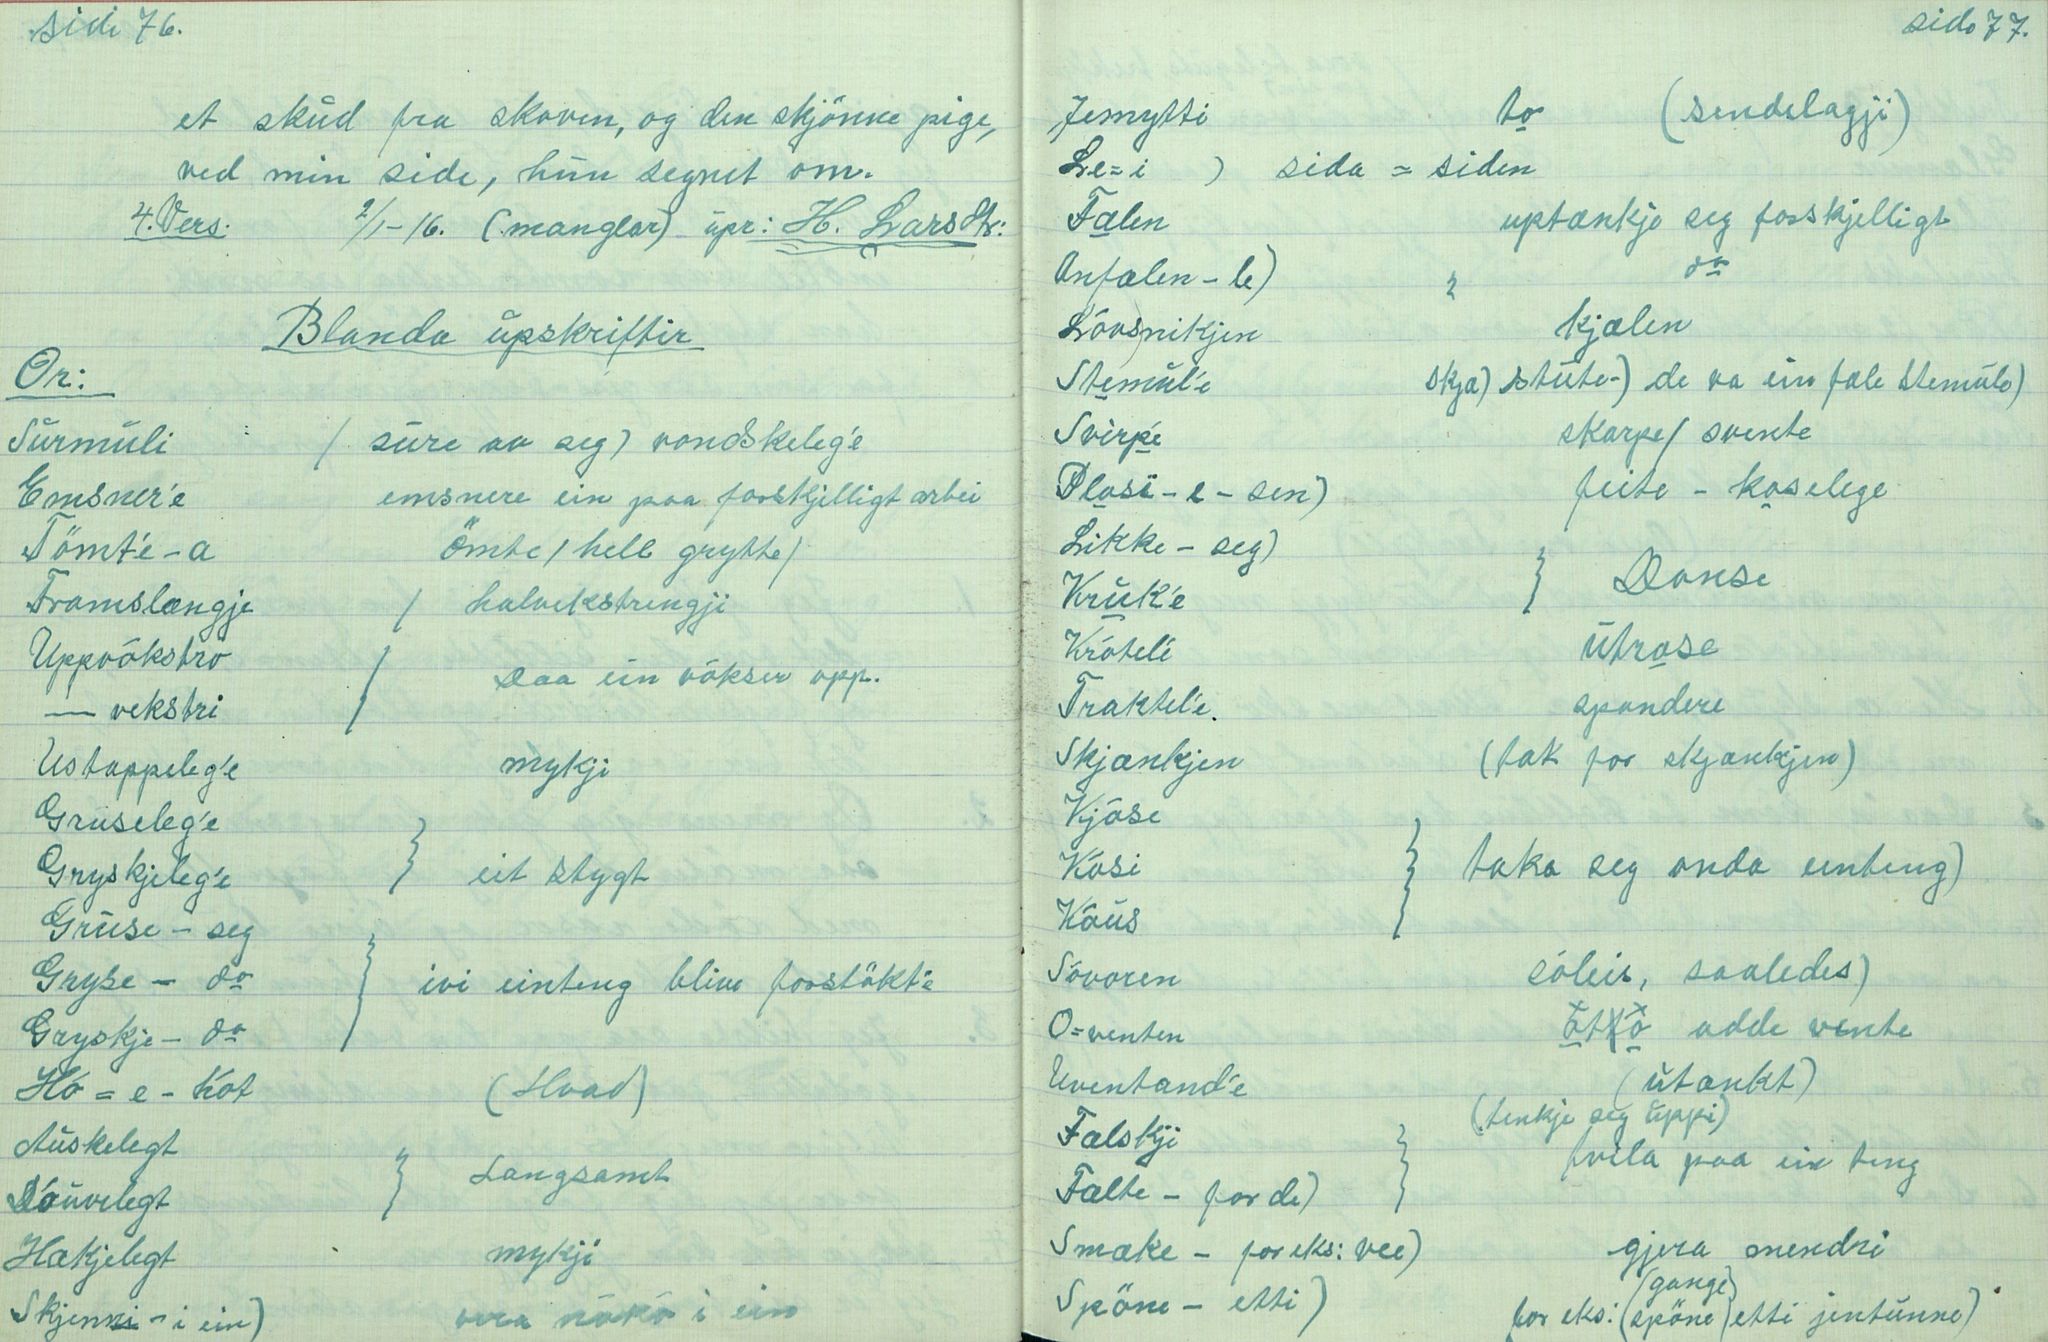 side 76.
et skŭd fra skoven, og den skjönne pige,
ved min side, hŭn segnet om.
4. Vers. 2/1-16. (manglar) ŭpr: H. Lars Str:
Blanda ŭpskriftir
Or:
Sŭrmŭli / sŭre av seg) vondskeleg'e
Emsner'e emsnere ein paa forskjelligt arbei
Tömt'e - a Ömte / hell grytte /
Framslængje / halvekstrengji
Uppvökstro
— vekstri / Daa ein vökser opp.
Ustappeleg'e mykji
Grŭseleg'e
Gryskjeleg'e } eit stygt
Grŭse - seg
Gryse - do } ivi einteng blive forstökt'e
Gryskje - do
Ko = e - Kot (Hvad)
Aŭskelegt
Daŭvelegt } Langsamt
Hækjelegt mykji
Skjenni - i ein) vera nökö i ein
side 77.
Jemytti to (sendelagji)
Le = i ) sida = siden
Fælen uptænkje seg forskjelligt
Anfælen - le) " do
Lövsnikjen kjælen
Stemŭl'e skja) stŭte-) de va ein fæle stemŭle)
Svirp'e skarpe / svente
Plosi - e - sen) feite - koselege
Likke - seg)
Krŭk'e } Danse
Krótel'e ŭtrose
Traktel'e. spandere
Skjænkjen (tak for skjænkjen)
Kjöse
Kösi } taka seg onda einteng)
Köŭs
Sövoren sóleis, saaledes)
O = venten odde vente
Uventand'e (ŭtænkt)
(tenkje seg ŭppi)
Fælskji
Fælte - for de) } kvila paa ein teng
Smæke - for eks: vee) gjera mendri
(gange)
Spöne - etti) for eks: (spöne) etti jentŭnne)